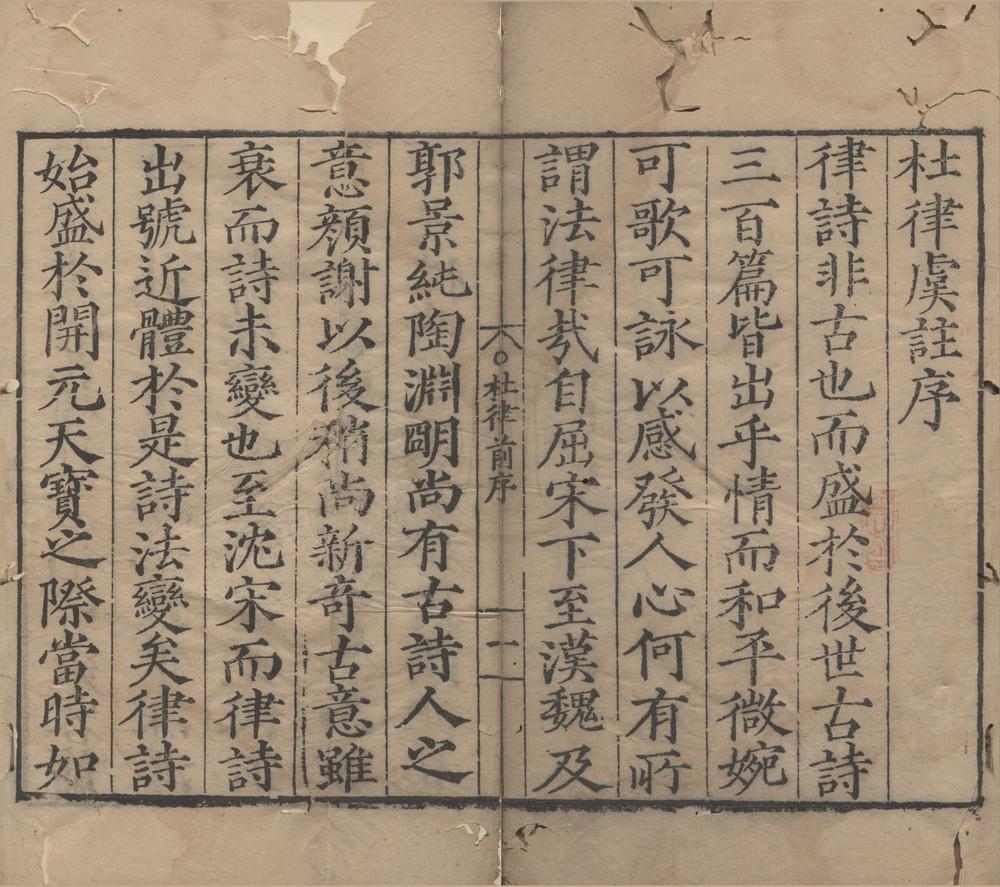 杜律虞註序
律詩非古也而盛於後世古詩
三百篇皆出乎情而和平微婉
可歌可詠以感發人心何有所
謂法律㢤自屈宋下至漢魏及
杜律前序
一
郭景純陶淵明尚有古詩人之
意顔謝以後稍尚新竒古意雖
衰而詩未變也至沈宋而律詩
出號近體於是詩法變矣律詩
始盛於開元天寶之際當時如